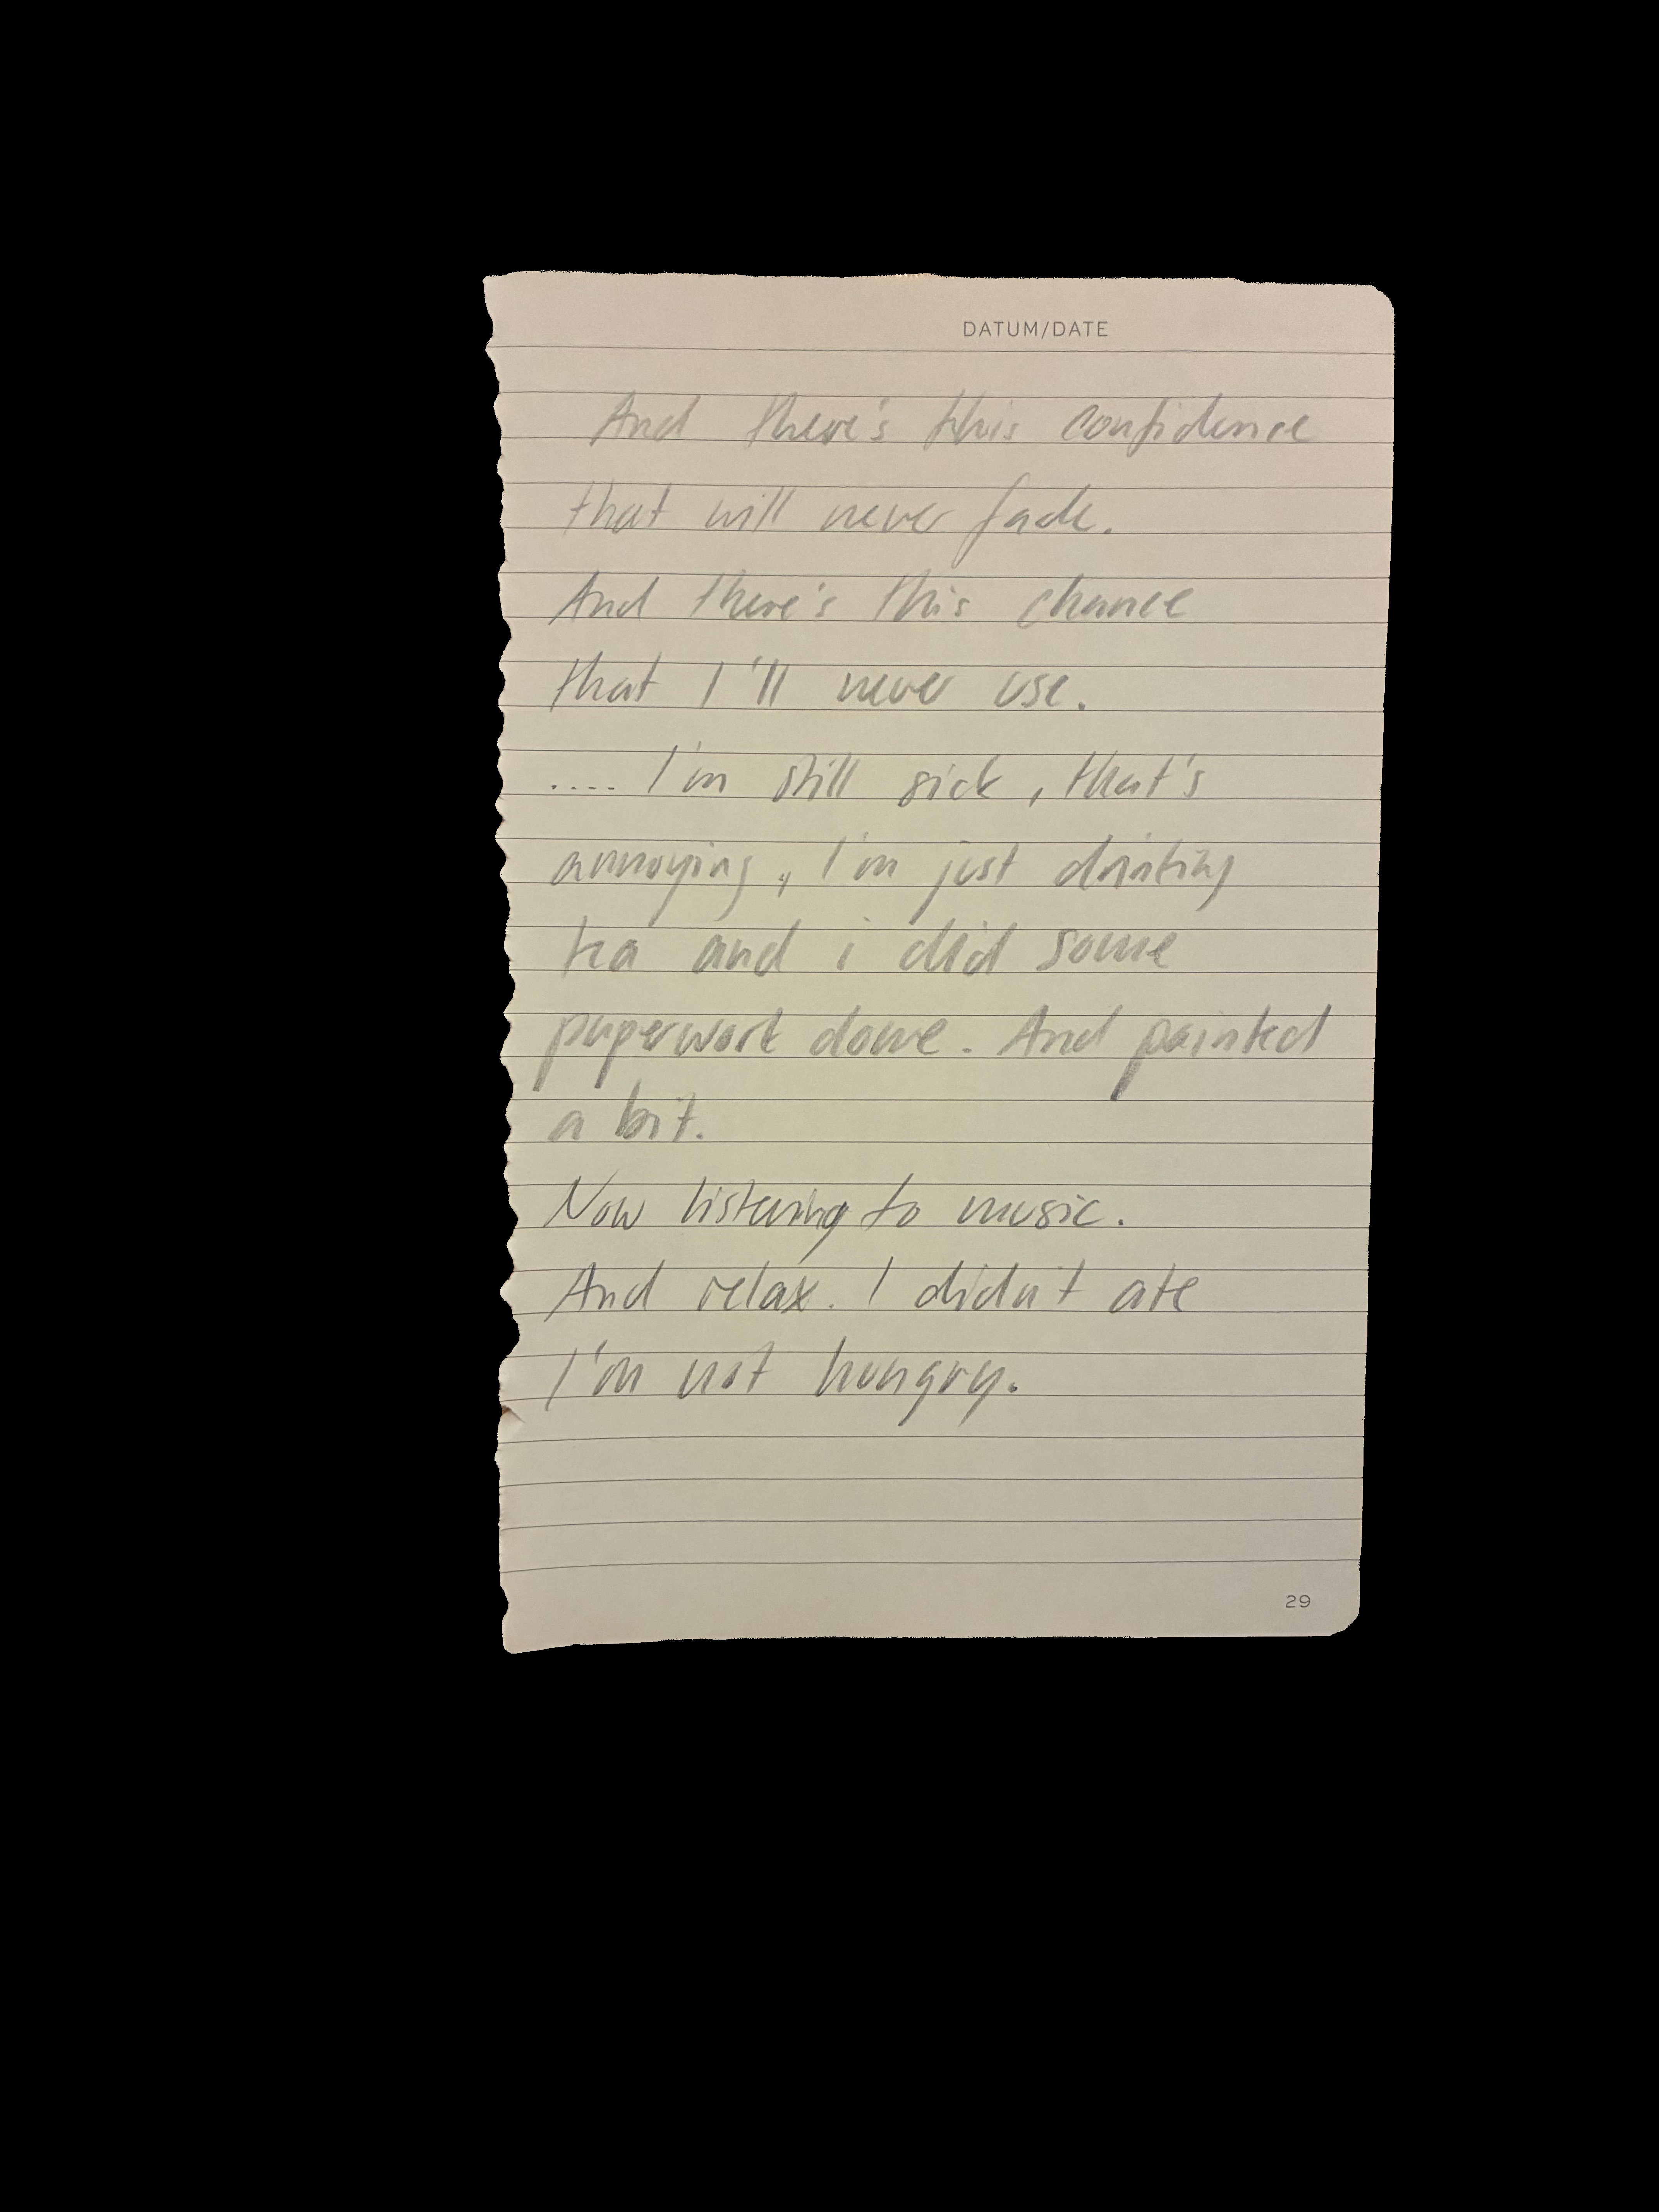 DATUM/DATE
And there's this confidence
that will never fade.
And there's this chance
that I'll never use.
.... I'm still sick, that's
annoying, I'm just drinking
tea and i did some
paperwork done. And painted
a bit.
Now listening to music.
And relax. I didn't ate
I'm not hungry.
29